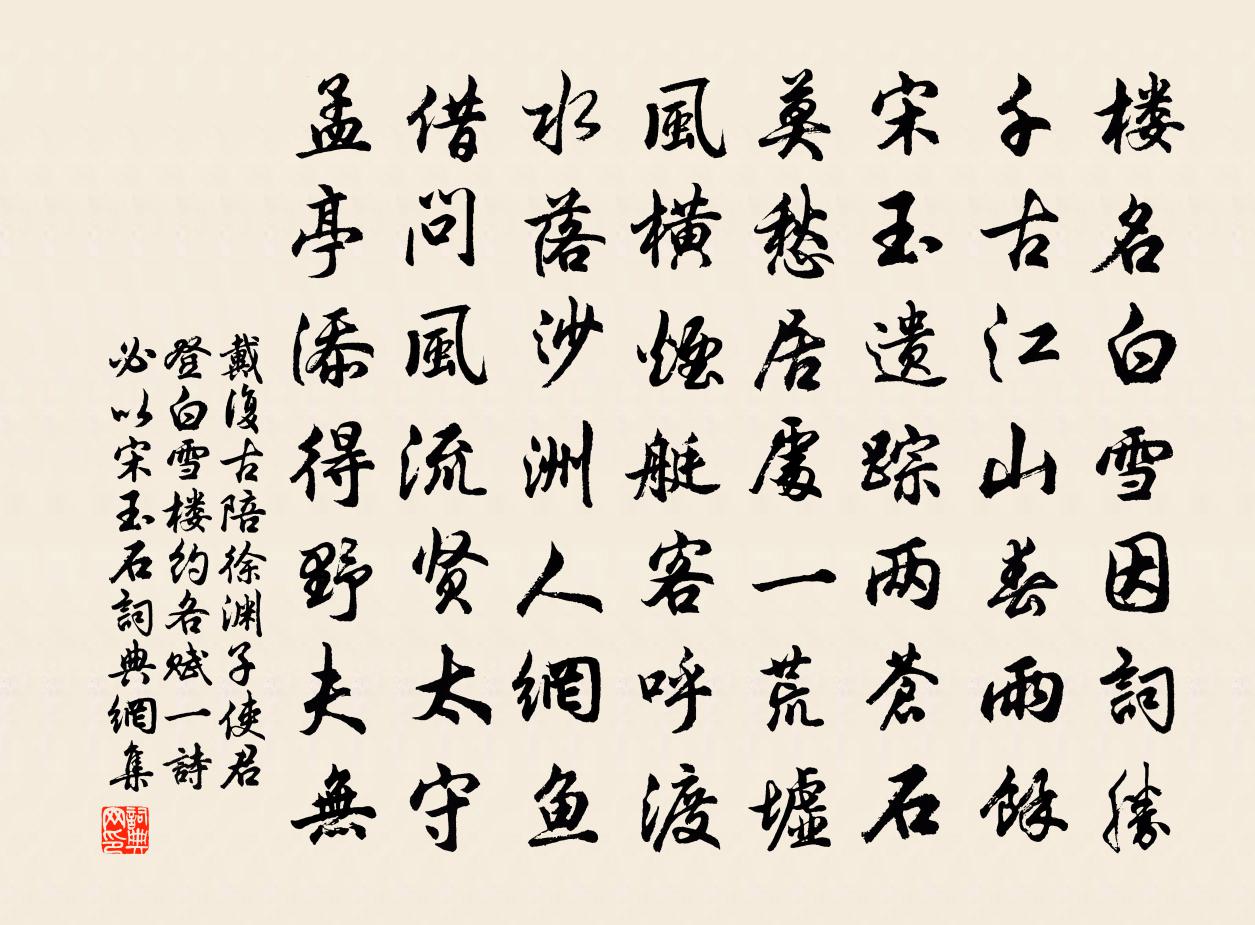 楼名白雪因詞勝
千古江山春雨餘
宋玉遗踪两蒼石
莫愁居處一荒墟
風横煙艇客呼渡
水落沙洲人網鱼
借问風流贤太守
孟亭添得野夫無
戴復古陪徐渊子使君
登白雪楼约各赋一詩
必以宋玉石詞典網集
詞典网印